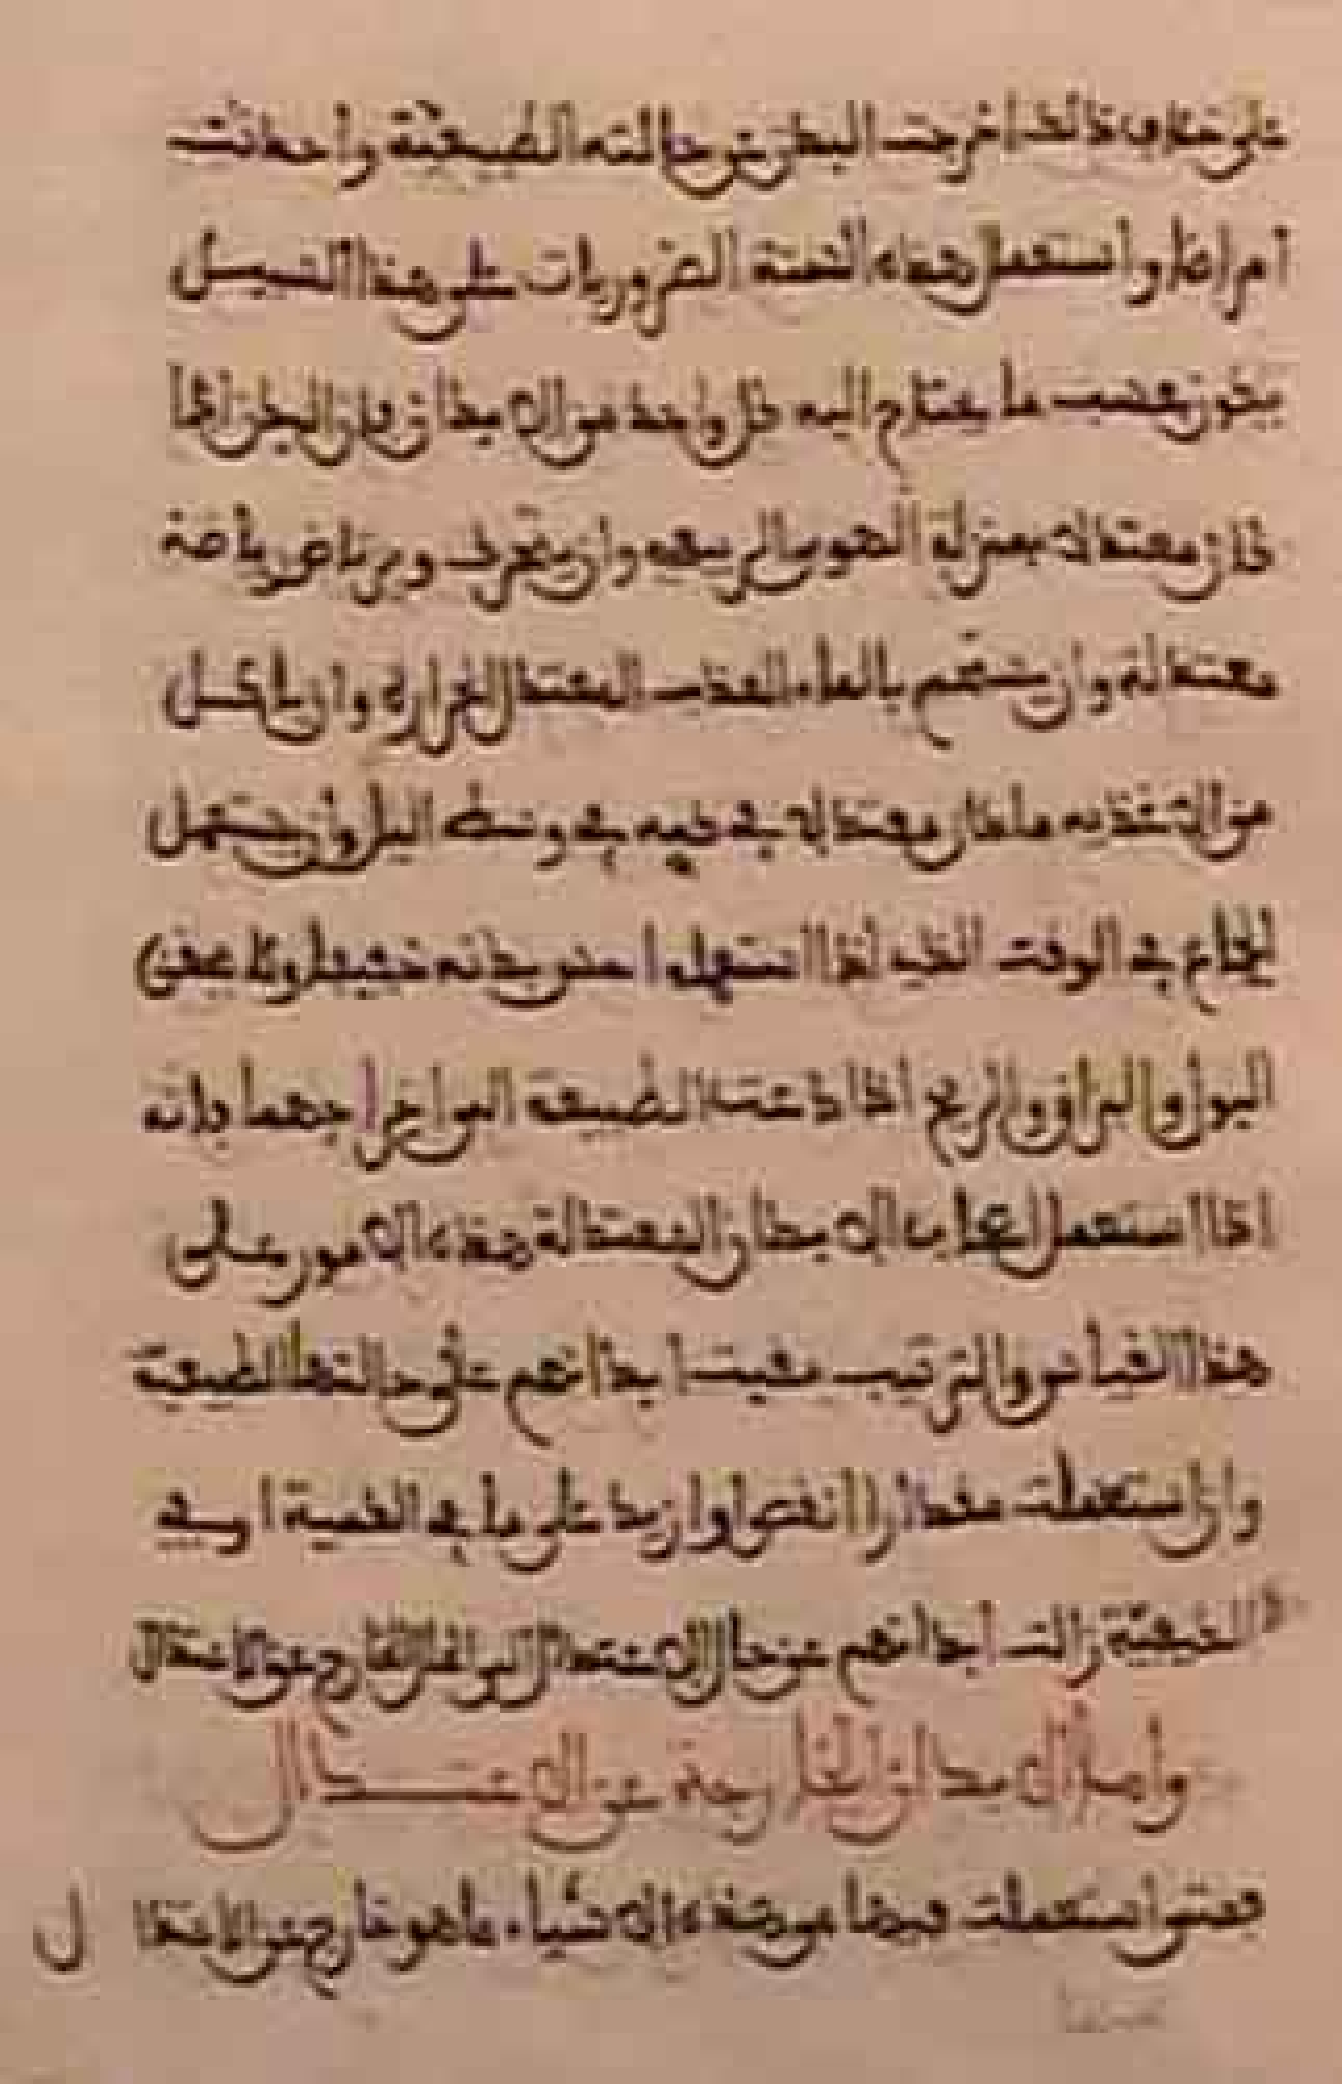 على خلاف ذلك اخرجت البدن عن حالته الطبيعية واحدثت
امراضا واستعمال هذه الستة الضروريات على هذا السبيل
يكون بحسب ما يحتاج اليه كل واحد من الابدان فان البدن اذا
كان معتدلا بمنزلة الهوى الربيعي وان يتحرك ويرتاض رياضة
معتدلة وان يستحم بالماء العذب المعتدل الحرارة وان ياكل
من الاغذيه ما كان معتدلا في كيفيه في وسط الليل وان يستعمل
الجماع في الوقت الذي اذا استعمل احس بدنه خفيفا ولا يحقن
البول والبراز والريح اذا دعته الطبيعة الى اخراجهما فانه
اذا استعمل اصحاب الابدان المعتدلة هذه الامور على
هذا القياس والترتيب بقيت ابدانهم على حالتها الطبيعية
وان استعملت مقدارا انقص او ازيد على ما في الكمية او في
الكيفية زالت ابدانهم عن حال الاعتدال الى الحال الخارج عن الاعتدال
واما الابدان الخارجة عن الاعتدال
فمتى استعملت فيها من هذه الاشياء ما هو خارج عن الاعتدال